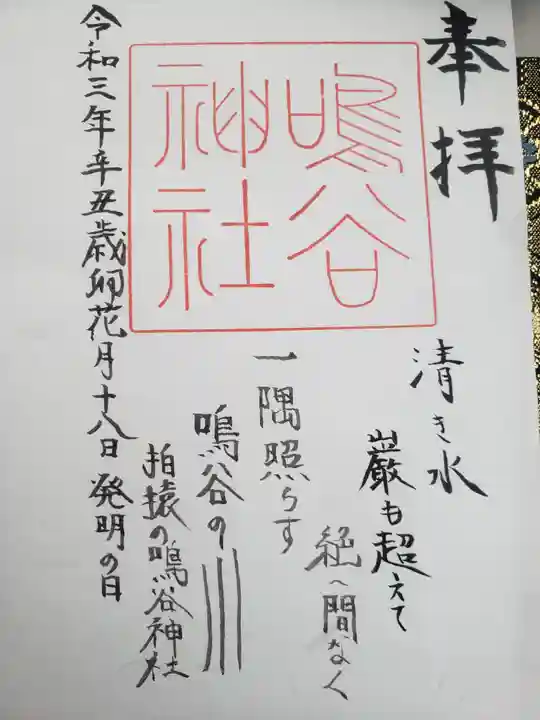 奉拝
鳴谷
神社
清き水
巌も超えて
絶へ間なく
一隅照らす
鳴谷の川
拍猿の鳴谷神社
令和三年辛丑歳卯花月十八日発明の日